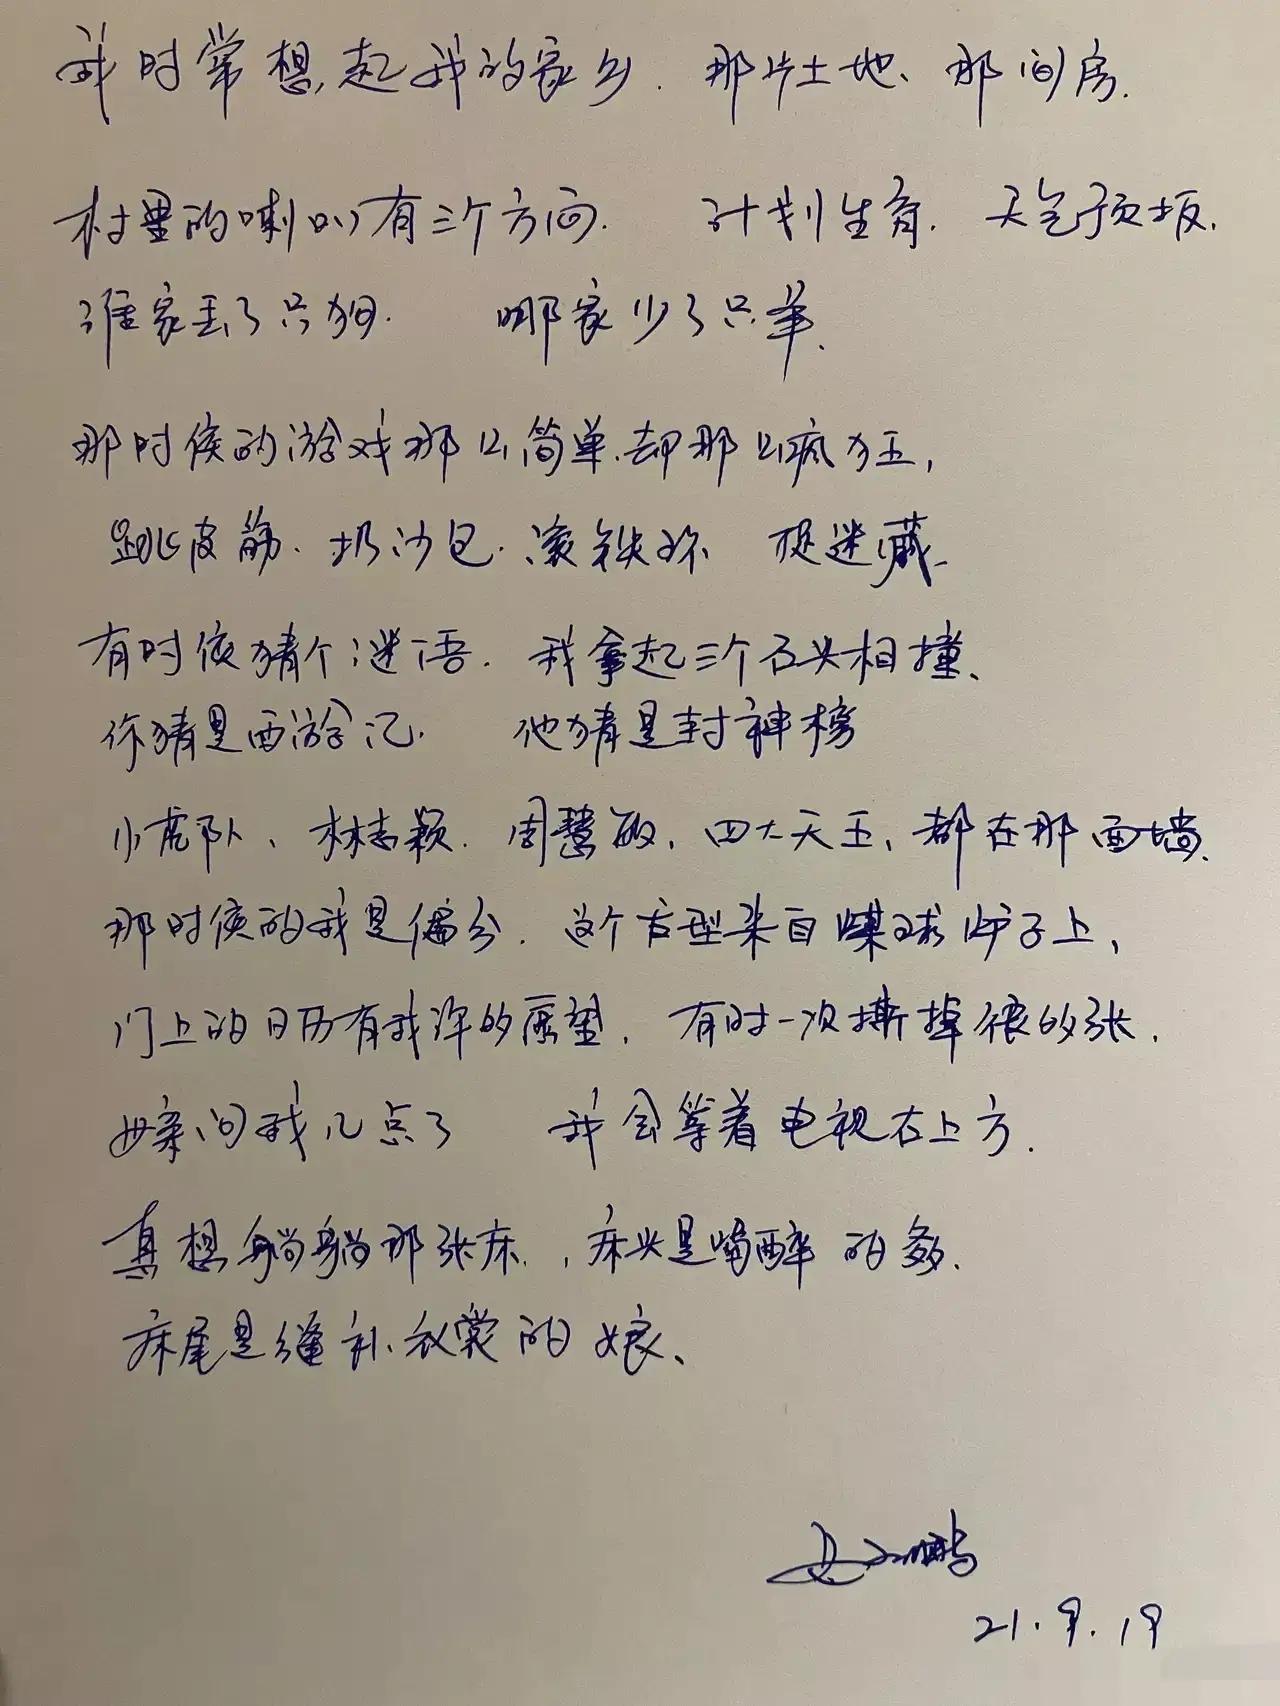 我时常想起我的家乡.那片土地、那间房.
村里的喇叭有三个方向.计划生育.天气预报.
谁家丢了只狗.哪家少了只羊.
那时候的游戏那么简单.却那么疯狂,
跳皮筋.扔沙包.滚铁环 捉迷藏.
有时候猜个谜语.我拿起三个石头相撞、
你猜是西游记.他猜是封神榜
小虎队、林志颖.周慧敏,四大天王,都在那面墙.
那时候的我是偏分.这个发型来自煤球炉子上,
门上的日历有我许的愿望.有时一次撕掉很的张.
母亲问我几点了 我会等着电视右上方.
真想躺躺那张床.,床头是喝醉的爹.
床尾是缝补衣裳的娘、
21.9.19